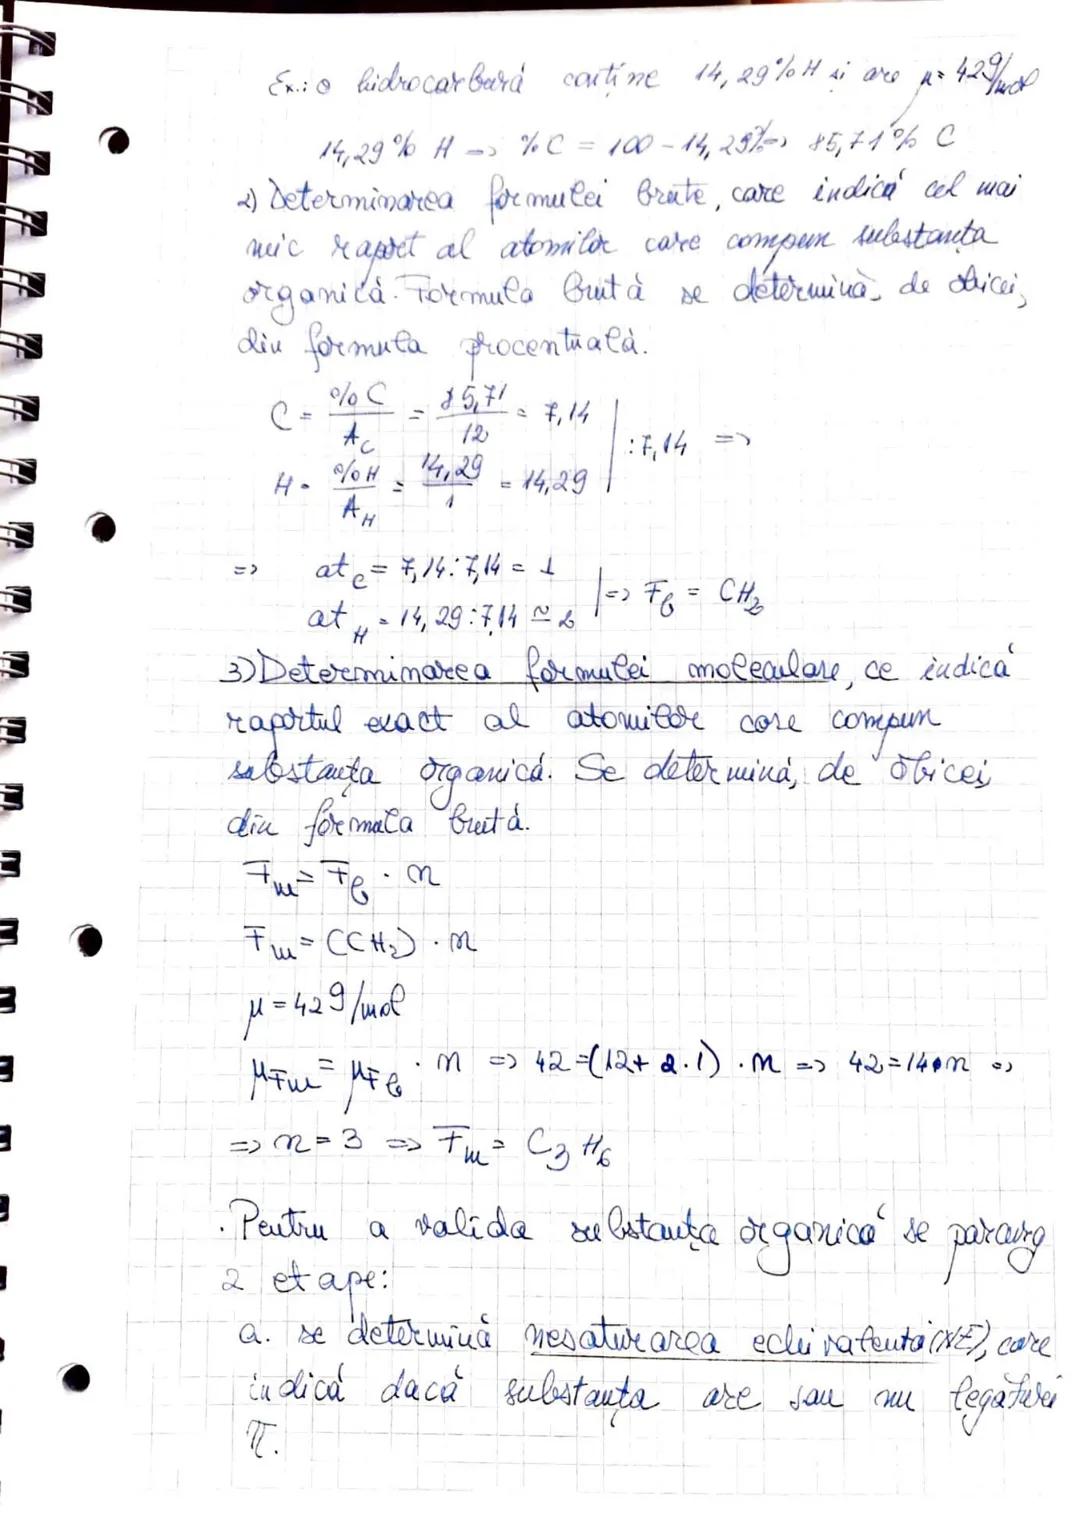 Ex.: o hidrocarbură conține 14,29% H și are μ = 42g/mol
14,29% H => % C = 100 - 14,29% => 85,71% C
2) Determinarea formulei brute, care indică cel mai
mic raport al atomilor care compun substanța
organică. Formula brută se determină, de obicei,
din formula procentuală.
C = %C/A_C = 85,71/12 = 7,14 | :7,14 =>
H = %H/A_H = 14,29/1 = 14,29
=> at_C = 7,14:7,14 = 1
at_H = 14,29:7,14 ≃ 2 |=> F_b = CH₂
3) Determinarea formulei moleculare, ce indică
raportul exact al atomilor care compun
substanța organică. Se determină, de obicei,
din formula brută.
F_m = F_b · n
F_m = (CH₂) · n
μ = 42 g/mol
μ_Fm = μ_Fb · n => 42 = (12 + 2·1) · n => 42 = 14·n =>
=> n = 3 => F_m = C₃H₆
· Pentru a valida substanța organică se parcurg
2 etape:
a. se determină nesaturarea echivalentă (NE), care
indică dacă substanța are sau nu legături
π.